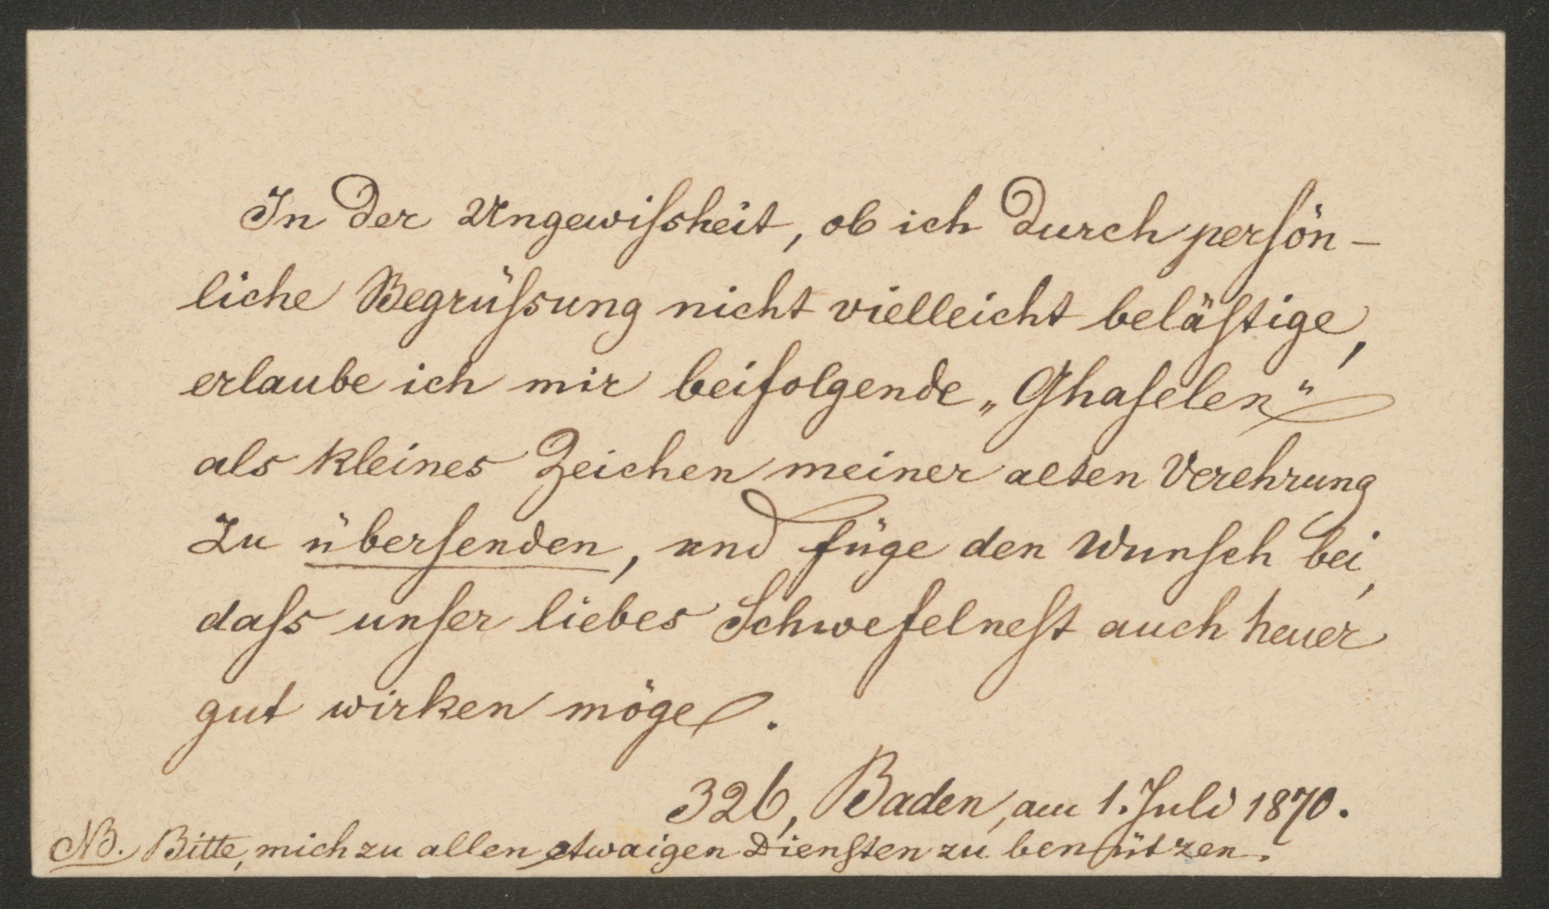 In der Ungewißsheit, ob ich durch persön-
liche Begrüssung nicht vielleicht belästige,
erlaube ich mir beifolgende „Ghaselen"
als kleines Zeichen meiner alten Verehrung
zu übersenden, und füge den Wunsch bei,
dass unser liebes Schwefelnest auch heuer
gut wirken möge.
326, Baden, am 1. Juli 1870.
NB. Bitte, mich zu allen etwaigen Diensten zu benützen.